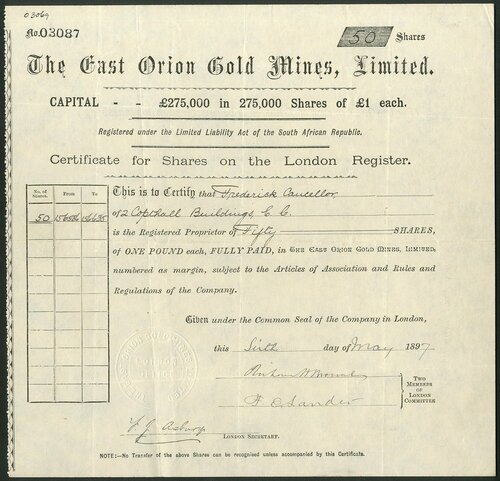 03069
No. 03087
50 Shares
The East Orion Gold Mines, Limited.
CAPITAL - - £275,000 in 275,000 Shares of £1 each.
Registered under the Limited Liability Act of the South African Republic.
Certificate for Shares on the London Register.
No. of Shares. From To
50
This is to Certify that Frederick Cancellor
of 2 Copthall Buildings E.C.
is the Registered Proprietor of Fifty SHARES,
of ONE POUND each, FULLY PAID, in THE EAST ORION GOLD MINES, LIMITED,
numbered as margin, subject to the Articles of Association and Rules and
Regulations of the Company.
Given under the Common Seal of the Company in London,
this Sixth day of May 1897
TWO MEMBERS OF LONDON COMMITTEE
LONDON SECRETARY.
NOTE:—No Transfer of the above Shares can be recognised unless accompanied by this Certificate.